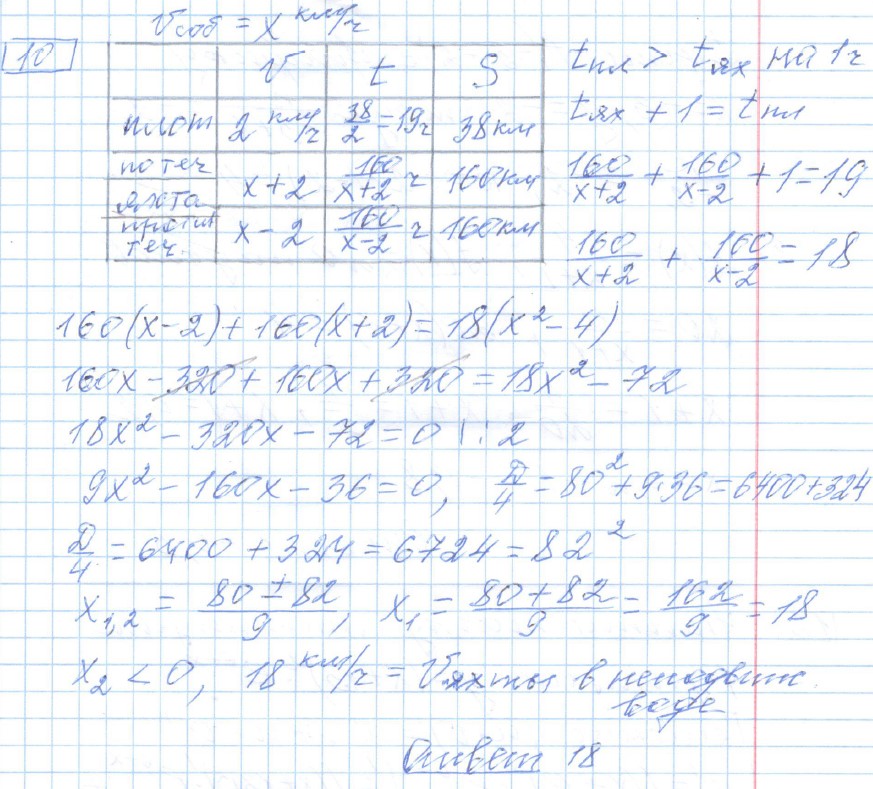 Vсоб = x км/ч
10
V t S
плот 2 км/ч 38/2 = 19ч 38 км
по теч x+2 160/(x+2) ч 160 км
яхта
против теч. x−2 160/(x−2) ч 160 км
tпл > tях на 1ч
tях + 1 = tпл
160/(x+2) + 160/(x−2) + 1 = 19
160/(x+2) + 160/(x−2) = 18
160(x−2) + 160(x+2) = 18(x² − 4)
160x − 320 + 160x + 320 = 18x² − 72
18x² − 320x − 72 = 0 | : 2
9x² − 160x − 36 = 0, Д/4 = 80² + 9·36 = 6400 + 324
Д/4 = 6400 + 324 = 6724 = 82²
x₁,₂ = (80 ± 82)/9, x₁ = (80 + 82)/9 = 162/9 = 18
x₂ < 0, 18 км/ч = Vяхты в неподвиж. воде
Ответ 18